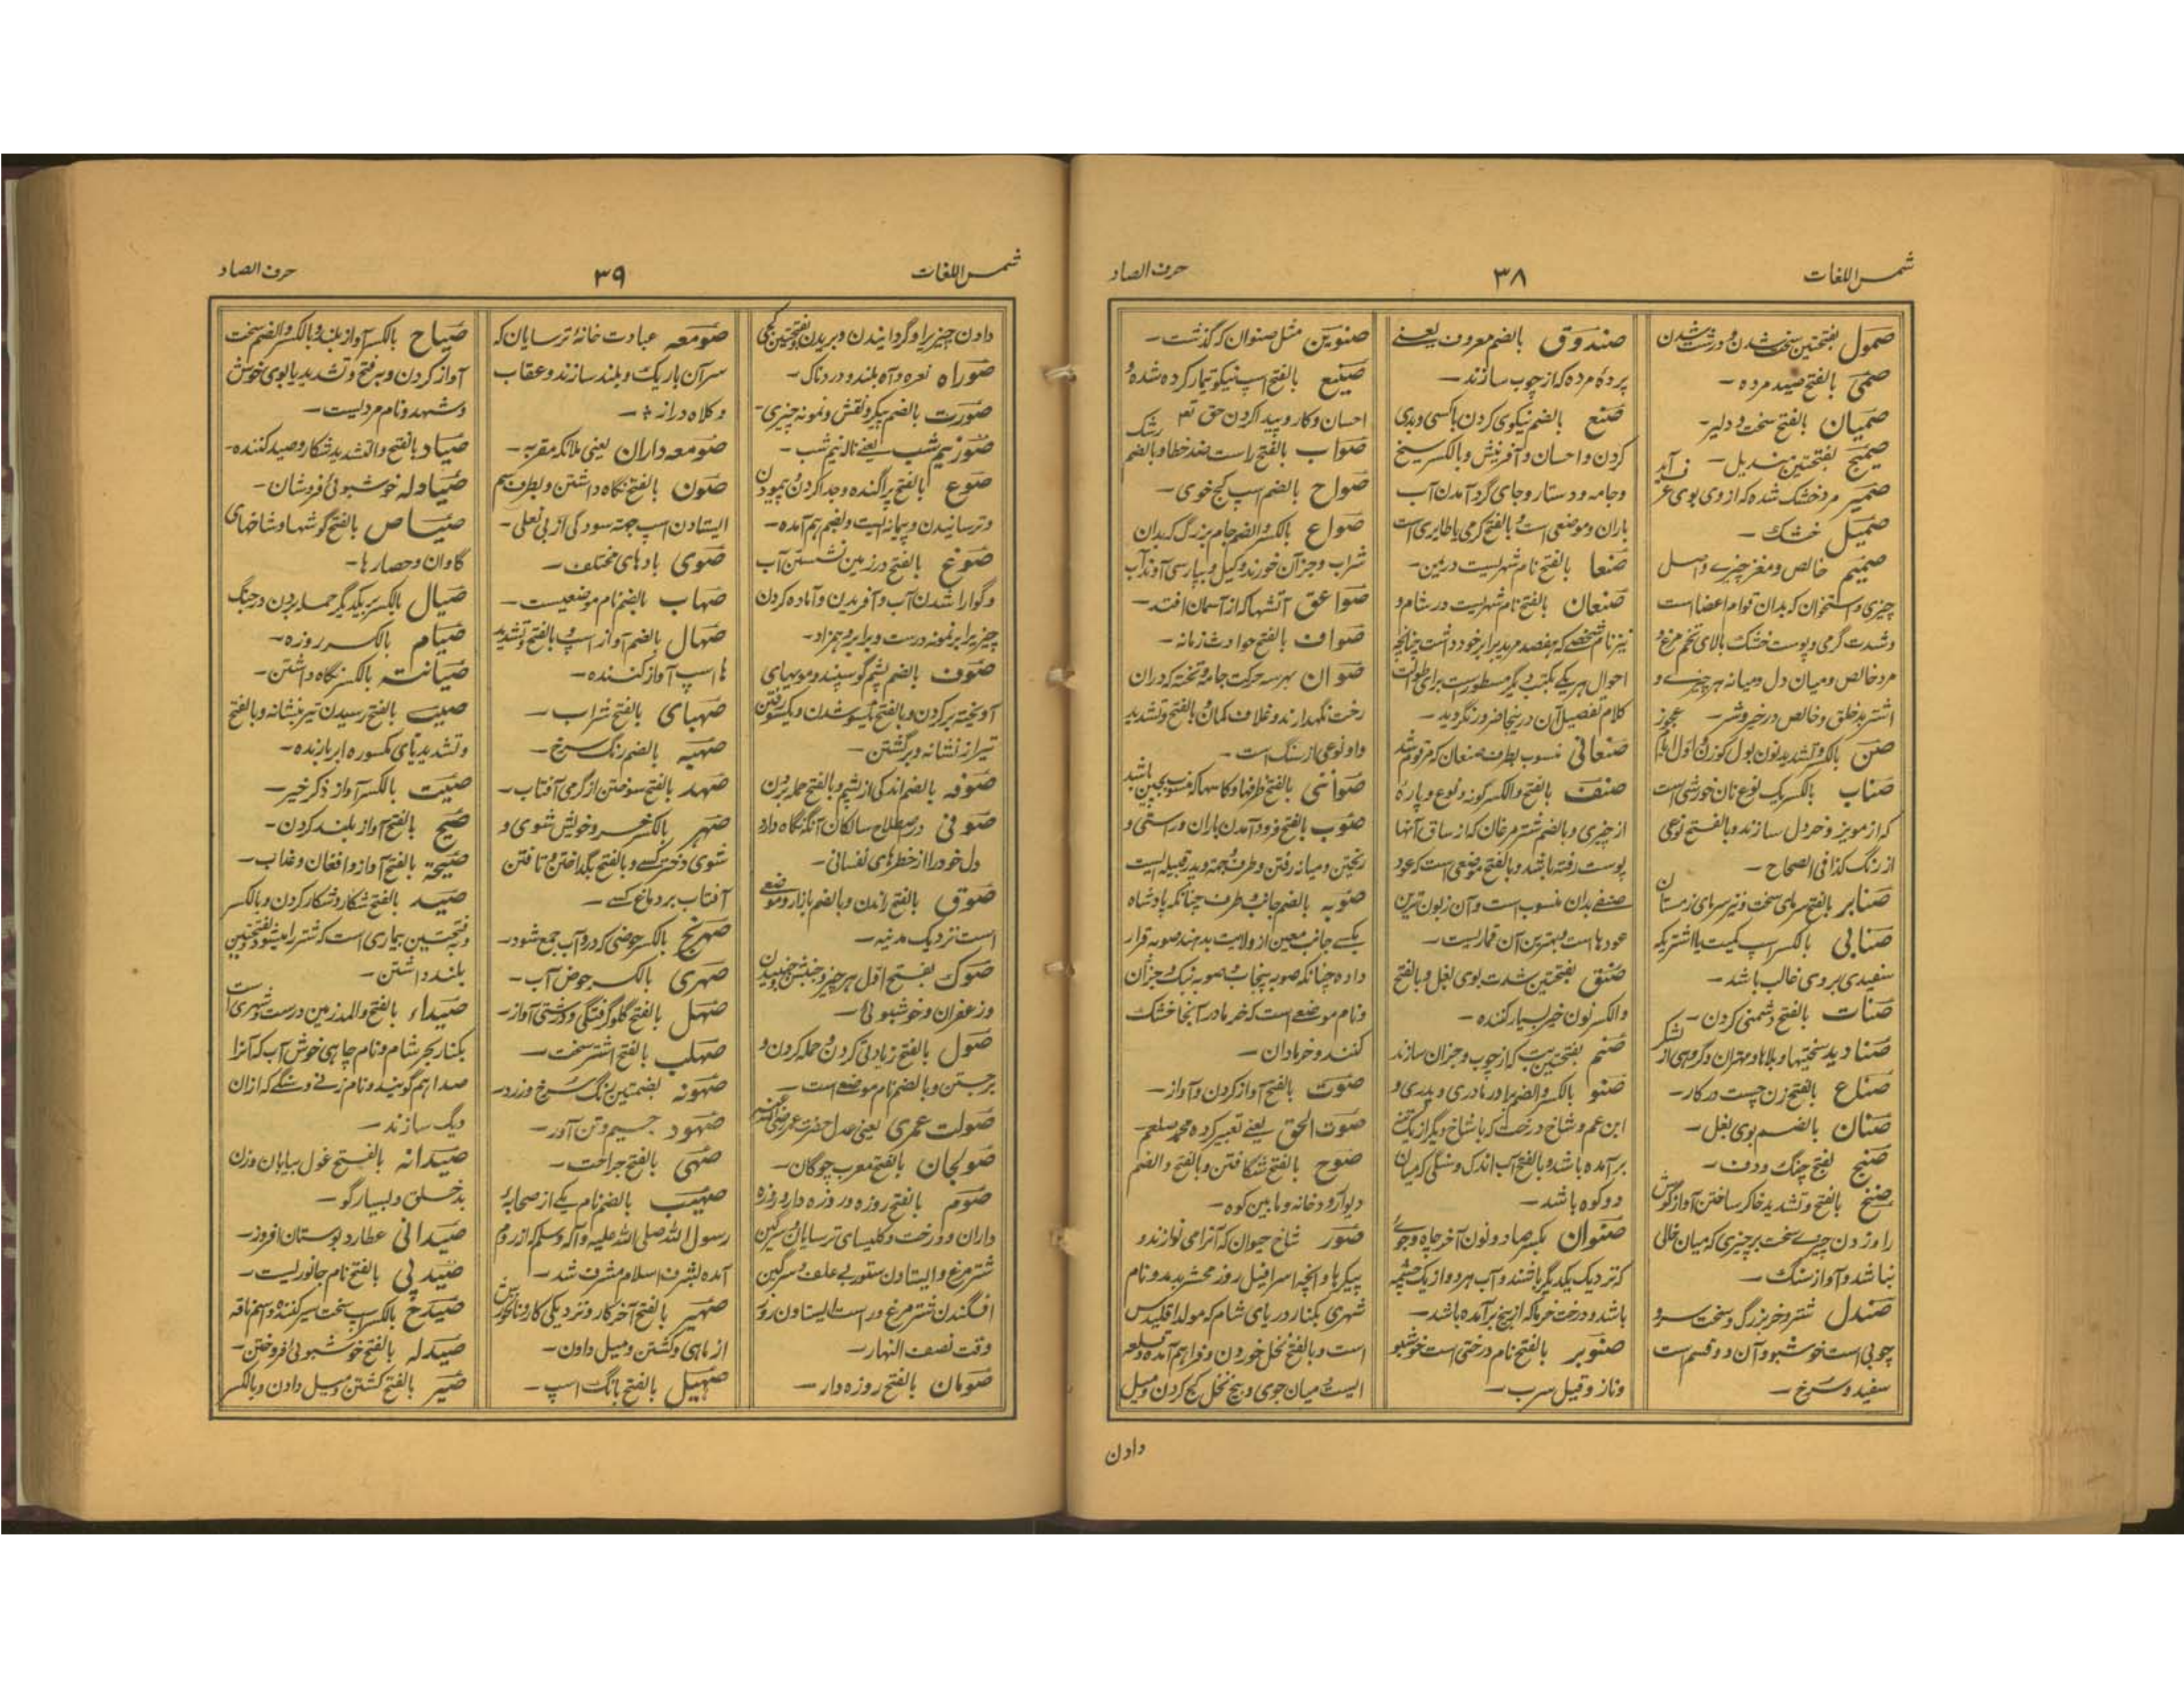 شمس اللغات
۳۸
حرف الصاد
صمول بفتحتین سخت شدن و درشت شدن
صمی بالفتح صید مرده -
صمیان بالفتح سخت و دلیر -
صمیج بفتحتین مندیل -
صمیر مرد خشک شده که از وی بوی عرق آید
صمیل خشک -
صمیم خالص و مغز چیزے و اصل
چیزی و استخوان که بدان قوام اعضا است
و شدت گرمی و پوست خشک بالای تخم مرغ و
مرد خالص و میان دل و میانه هر چیزے و
اشتر بد خلق و خالص در خیر و شر -
صن بالکسر و تشدید نون بول کوزن و اول ایام عجوز
صناب بالکسر یک نوع نان خورشی است
که از مویز و خردل سازند و بالفتح نوعی
از رنگ کذا فی الصحاح -
صنابر بالفتح سرمای سخت و نیز سرمای زمستان
صنابی بالکسر اسپ کمیت یا اشتر که
سفیدی بر وی غالب باشد -
صنات بالفتح دشمنی کردن -
صنادید سختیها و بلاها و مهتران و گروهی از لشکر
صناع بالفتح زن چست در کار -
صنان بالضم بوی بغل -
صنج بفتح چنگ و دف -
صنخ بالفتح و تشدید خا کر ساختن آواز گوش
را و زدن چیزے سخت بر چیزی که میان خالی
نباشد و آواز سنگ -
صندل شتر و خر بزرگ و سخت سر و
چوبی است خوشبو و آن دو قسم است
سفید و سرخ -
صندوق بالضم معروف یعنے
پرده مرده که از چوب سازند -
صنع بالضم نیکوی کردن با کسی و بدی
کردن و احسان و آفرینش و بالکسر سیخ
و جامه و دستار و جای گرد آمدن آب
باران و موضعی است و بالفتح کرمی یا طایری است
صنعا بالفتح نام شهریست در یمن -
صنعان بالفتح نام شهریست در شام و
نیز نام شخصے که هفصد مرید برابر خود داشت چنانچه
احوال هر یکے بکتب دیگر مسطور است برای طوالت
کلام تفصیل آن در ینجا ضرور نگردید -
صنعانی منسوب بطرف صنعان که مرقوم شد
صنف بالفتح و الکسر گونه و نوع و پاره
از چیزی و بالضم شتر مرغان که از ساق آنها
پوست رفته باشد و بالفتح موضعی است که عود
صنفے بدان منسوب است و آن زبون ترین
عودها است و بهترین آن قماریست -
صنق بفتحتین شدت بوی بغل و بالفتح
و الکسر نون خیر بسیار کننده -
صنم بفتحتین بت که از چوب و جزان سازند
صنو بالکسر و الضم برادر مادری و پدری و
ابن عم و شاخ درخت که با شاخ دیگر از یک تنے
بر آمده باشد و بالفتح آب اندک و سنگی که میان
دو کوه باشد -
صنوان بکسر صاد و نون آخر چاه و جوے
که نزدیک یکدیگر باشند و آب هر دو از یک چشمه
باشد و درخت خرما که از بیخ بر آمده باشد -
صنوبر بالفتح نام درختی است خوشبو
و ناز و قیل سرب -
صنوین مثل صنوان که گذشت -
صنیع بالفتح اسپ نیکو تیمار کرده شده و
احسان و کار و پیدا کردن حق تعم
صواب بالفتح راست ضد خطا و بالضم رشک
صواح بالضم اسپ کج خوی -
صواع بالکسر و الضم جام بزرگ که بدان
شراب و جز آن خورند و کیل و بپارسی آوند آب
صواعق آتشها که از آسمان افتد -
صواف بالفتح حوادث زمانه -
صوان بهر سه حرکت جامه و تخته که دران
رخت نگهدارند و غلاف کمان و بالفتح و تشدید
واو نوعی از سنگ است -
صوانی بالفتح ظرفها و کاسها که منسوب بچین باشد
صوب بالفتح فرود آمدن باران و راستی و
ریختن و میانه رفتن و طرف و جهت و پدر قبیله ایست
صوبه بالضم جانب و طرف چنانکه پادشاه
یکے جانب معین از ولایت بدهند صوبه قرار
داده چنانکه صوبه پنجاب و صوبه بنگ و جزآن
و نام موضعے است که خرما در آنجا خشک
کنند و خرمادان -
صوت بالفتح آواز کردن و آواز -
صوت الحق یعنے تعبیر کرده محمد صلعم -
صوح بالفتح شکافتن و بالفتح و الضم
دیوار رودخانه و ما بین کوه -
صور شاخ حیوان که آنرا می نوازند و
پیکرها و آنچه اسرافیل روز محشر بدمد و نام
شهری بکنار دریای شام که مولد اقلیدس
است و بالفتح نخل خوردن و فراهم آمده و قلعه
ایست میان جوی و بیخ نخل کج کردن و میل
دادن
شمس اللغات
۳۹
حرف الصاد
دادن چیزیرا و گردانیدن و بریدن و بفتحتین کجی
صوراه نعره و آه بلند و دردناک -
صورت بالضم پیکر و نقش و نمونه چیزی -
صور نیم شب یعنے ناله نیم شب -
صوع بالفتح پراگنده و جدا کردن و پیمودن
و ترسانیدن و پیمانه ایست و بضم هم آمده -
صوغ بالفتح در زمین نشستن آب
و گوارا شدن آب و آفریدن و آماده کردن
چیز برابر نمونه درست و برابر و همزاد -
صوف بالضم پشم گوسپند و موبهای
آویخته بر کردن و بالفتح یکسو شدن و یکسو رفتن
تیر از نشانه و برگشتن -
صوفه بالضم اندکی از پشم و بالفتح حمله بردن
صوفی در اصطلاح سالکان آنکه نگاه دارد
دل خود را از خطرهای نفسانی -
صوق بالفتح راندن و بالضم بازار و موضعے
است نزدیک مدینه -
صوک بفتح اول هر چیز و جنبش و جنبیدن
و زعفران و خوشبوئی -
صول بالفتح زیادتی کردن و حمله کردن و
برجستن و بالضم نام موضعے است -
صولت عمری یعنی عدل حضرت عمر رضی الله عنه
صولجان بالفتح معرب چوگان -
صوم بالفتح روزه و روزه دار و روزه
داران و درخت و کلیسای ترسایان و سرگین
شتر مرغ و ایستادن ستور بے علف و سرگین
افگندن شتر مرغ و راست ایستادن روز
وقت نصف النهار -
صومان بالفتح روزه دار -
صومعه عبادت خانهٔ ترسایان که
سرآن باریک و بلند سازند و عقاب
و کلاه دراز -
صومعه داران یعنی ملائکه مقربه -
صون بالفتح نگاه داشتن و بطرف سم
ایستادن اسپ جهة سودگی از بی نعلی -
صوی بادهای مختلف -
صهاب بالضم نام موضعیست -
صهال بالضم آواز اسپ و بالفتح و تشدید
ها اسپ آواز کننده -
صهبای بالفتح شراب -
صهبه بالضم رنگ سرخ -
صهد بالفتح سوختن از گرمی آفتاب -
صهر بالکسر خسر و خویش شوی و
شوی دختر کسے و بالفتح بگداختن و تافتن
آفتاب بر دماغ کسے -
صهرنج بالکسر حوضی که درو آب جمع شود -
صهری بالکسر حوض آب -
صهل بالفتح گلو گرفتگی و درشتی آواز -
صهلب بالفتح اشتر سخت -
صهونه بضمتین رنگ سرخ و زرد -
صهود جسیم و تن آور -
صهی بالفتح جراحت -
صهیب بالضم نام یکے از صحابهٔ
رسول الله صلی الله علیه و آله و سلم که از روم
آمده بشرف اسلام مشرف شد -
صهیر بالفتح آخر کار و نزدیکی کار و نانخورش
از ماهی و کشتن و میل دادن -
صهیل بالفتح بانگ اسپ -
صیاح بالکسر آواز بلند و بالکسر و الضم سخت
آواز کردن و بفتح و تشدید یا بوی خوش
و شهد و نام مردیست -
صیاد بالفتح و التشدید شکار و صید کننده -
صیادله خوشبوئی فروشان -
صیاص بالفتح گوشها و شاخهای
گاوان و حصارها -
صیال بالکسر بر یکدیگر حمله بردن در جنگ
صیام بالکسر روزه -
صیانت بالکسر نگاه داشتن -
صیب بالفتح رسیدن تیر بنشانه و بالفتح
و تشدید یای مکسوره ابر بارنده -
صیت بالکسر آواز ذکر خیر -
صیح بالفتح آواز بلند کردن -
صیحة بالفتح آواز و افغان و عذاب -
صید بالفتح شکار و شکار کردن و بالکسر
و بفتحتین بیماری است که شتر را میشود و بفتحتین
بلند داشتن -
صیداء بالفتح و المد زمین درست و شهری است
بکنار بحر شام و نام چاهی خوش آب که آنرا
صدا هم گویند و نام زنے و سنگے که ازان
دیگ سازند -
صیدانه بالفتح غول بیابان و زن
بدخلق و بسیار گو -
صیدانی عطار و بوستان افروز -
صیدنی بالفتح نام جانوریست -
صیدخ بالکسر اسپ سخت سیر کننده و اسم ناقه
صیدله بالفتح خوشبوئی افروختن -
صیر بالفتح گشتن و میل دادن و بالکسر